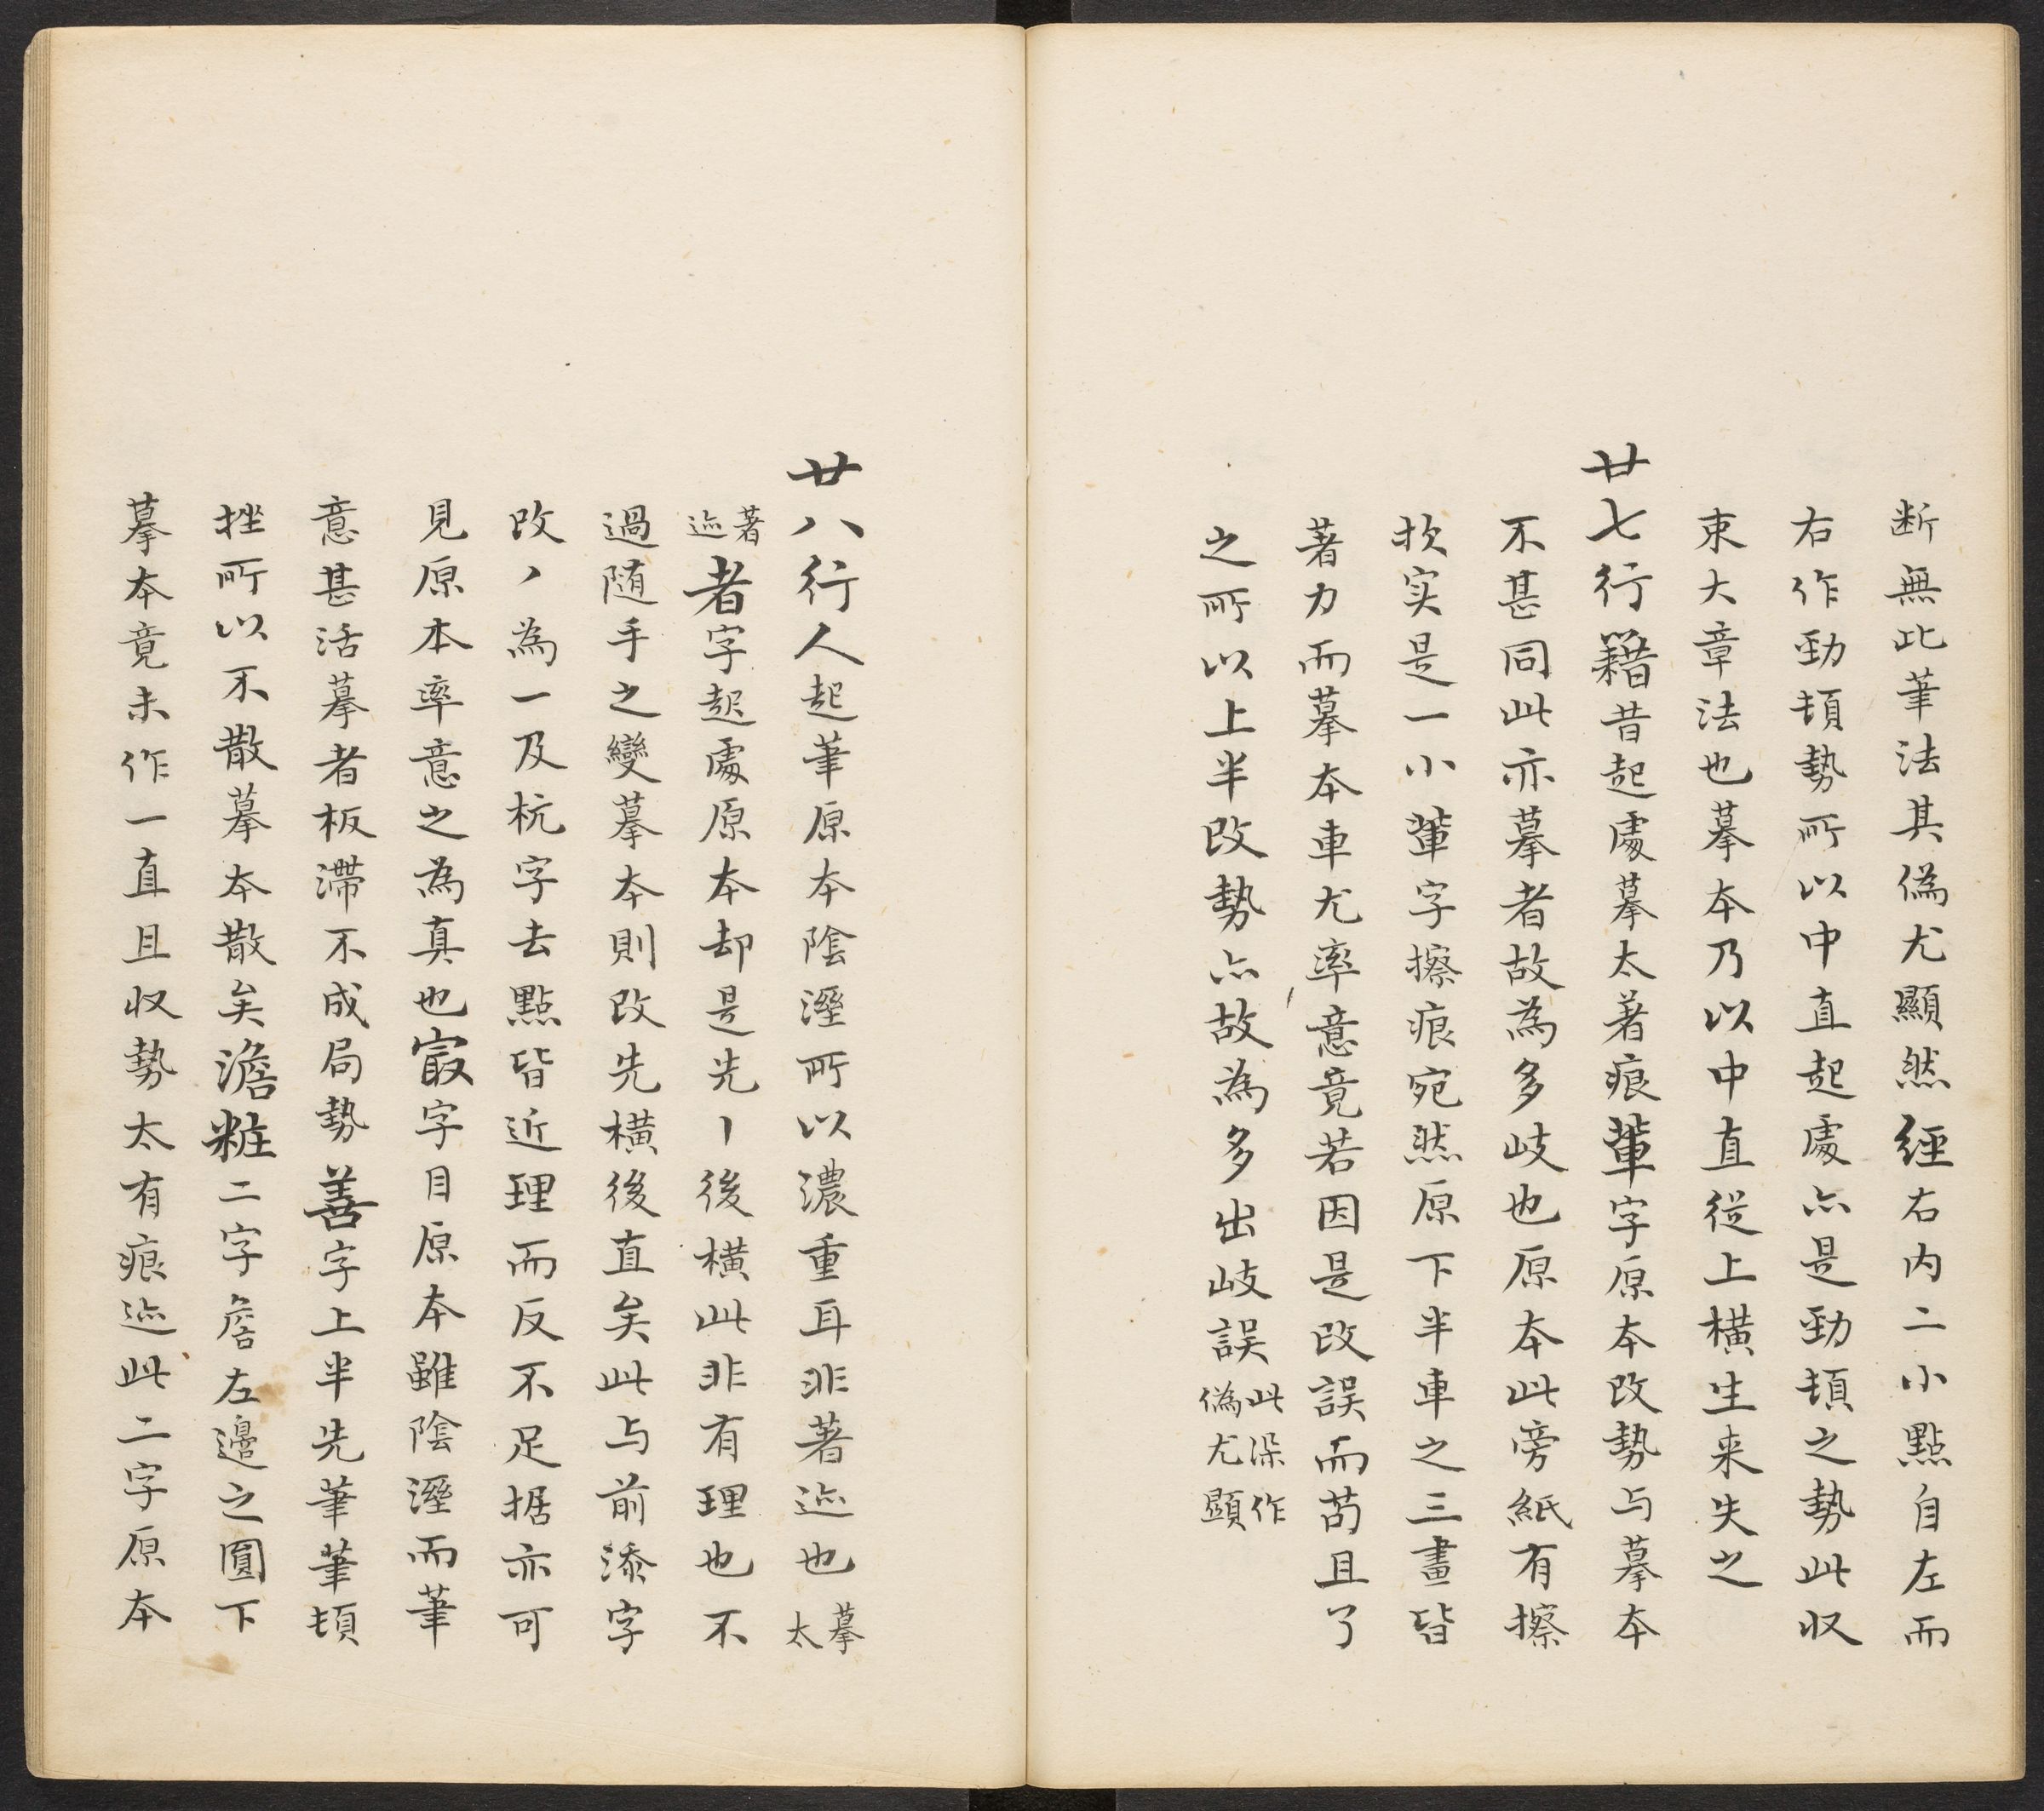 断無此筆法其偽尤顯然經右内二小點自左而
右作勁頓勢所以中直起處亦是勁頓之勢此収
束大章法也摹本乃以中直從上橫生来失之
廿七行籍昔起處摹太著痕輦字原本改勢与摹本
不甚同此亦摹者故為多歧也原本此旁紙有擦
扻实是一小輦字擦痕宛然原下半車之三畫皆
著力而摹本車尤率意竟若因是改誤而苟且了
之所以上半改勢亦故為多出岐誤此深作
偽尤顯
廿八行人起筆原本陰溼所以濃重耳非著迹也摹
太
著
迹者字起處原本却是先丨後橫此非有理也不
過随手之變摹本則改先橫後直矣此与前添字
改丿為一及杭字去點皆近理而反不足据亦可
見原本率意之為真也㝡字目原本雖陰溼而筆
意甚活摹者板滯不成局勢善字上半先筆筆頓
挫所以不散摹本散矣澹粧二字詹左邉之圓下
摹本竟未作一直且収勢太有痕迹此二字原本